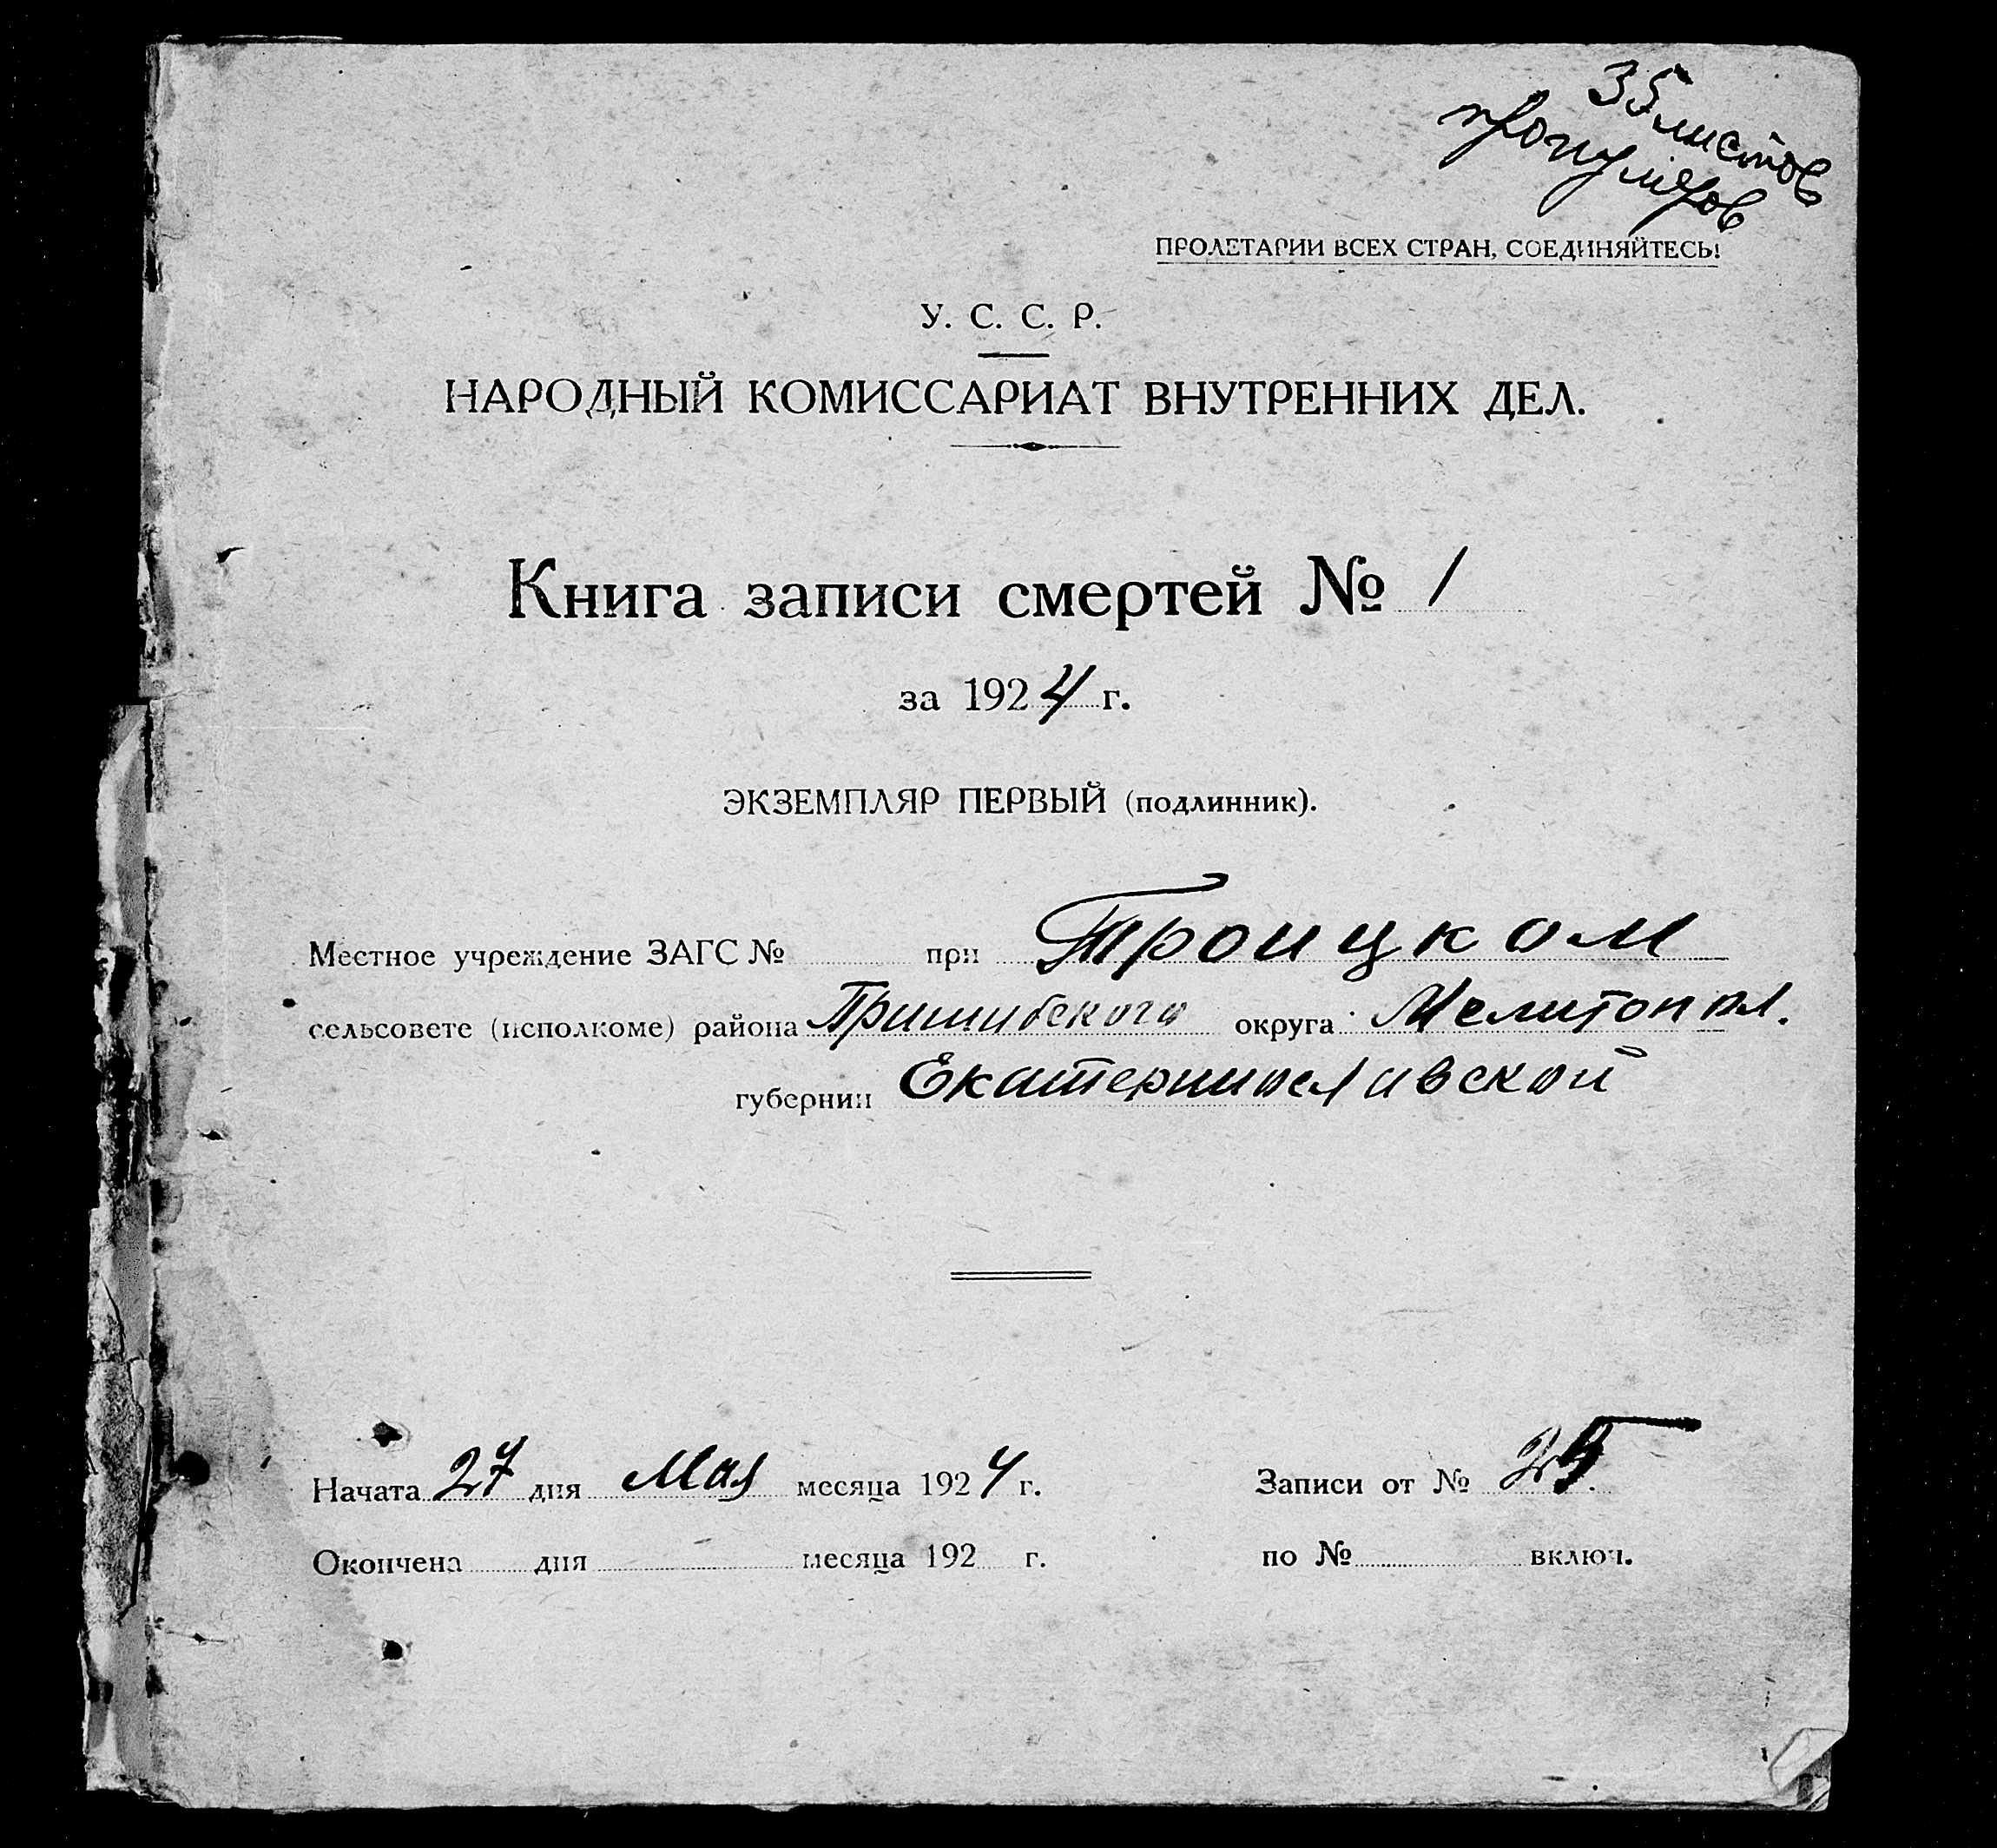 35 листов
пронумеров
ПРОЛЕТАРИИ ВСЕХ СТРАН, СОЕДИНЯЙТЕСЬ!
У. С. С. Р.
НАРОДНЫЙ КОМИССАРИАТ ВНУТРЕННИХ ДЕЛ.
Книга записи смертей № 1
за 1924 г.
ЭКЗЕМПЛЯР ПЕРВЫЙ (подлинник).
Местное учреждение ЗАГС № при Троицком
сельсовете (исполкоме) района Пришибского округа Мелитопол.
губернии Екатеринославской
Начата 27 дня Мая месяца 1924 г. Записи от №
Окончена дня месяца 192 г. по № включ.